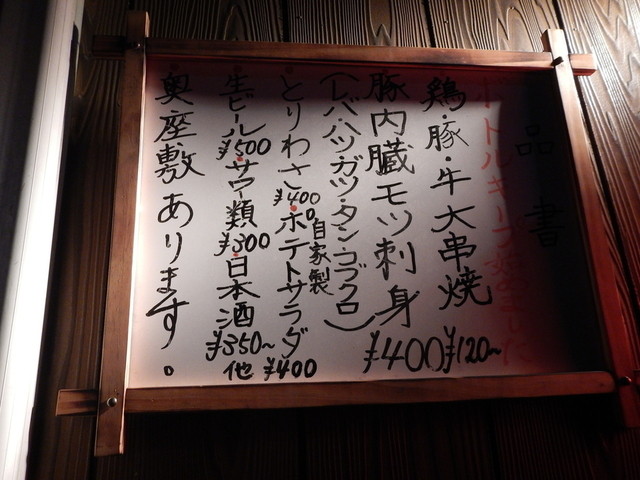 品書
ボトルキープ始めました
鶏・豚・牛大串焼 ¥120~
豚内臓モツ刺身 ¥400
(レバ・ハツ・ガツ・タン・コブクロ)
・とりわさ¥400。自家製・ポテトサラダ¥400
・生ビール¥500・サワー類¥300・日本酒¥350~他
奥座敷あります。